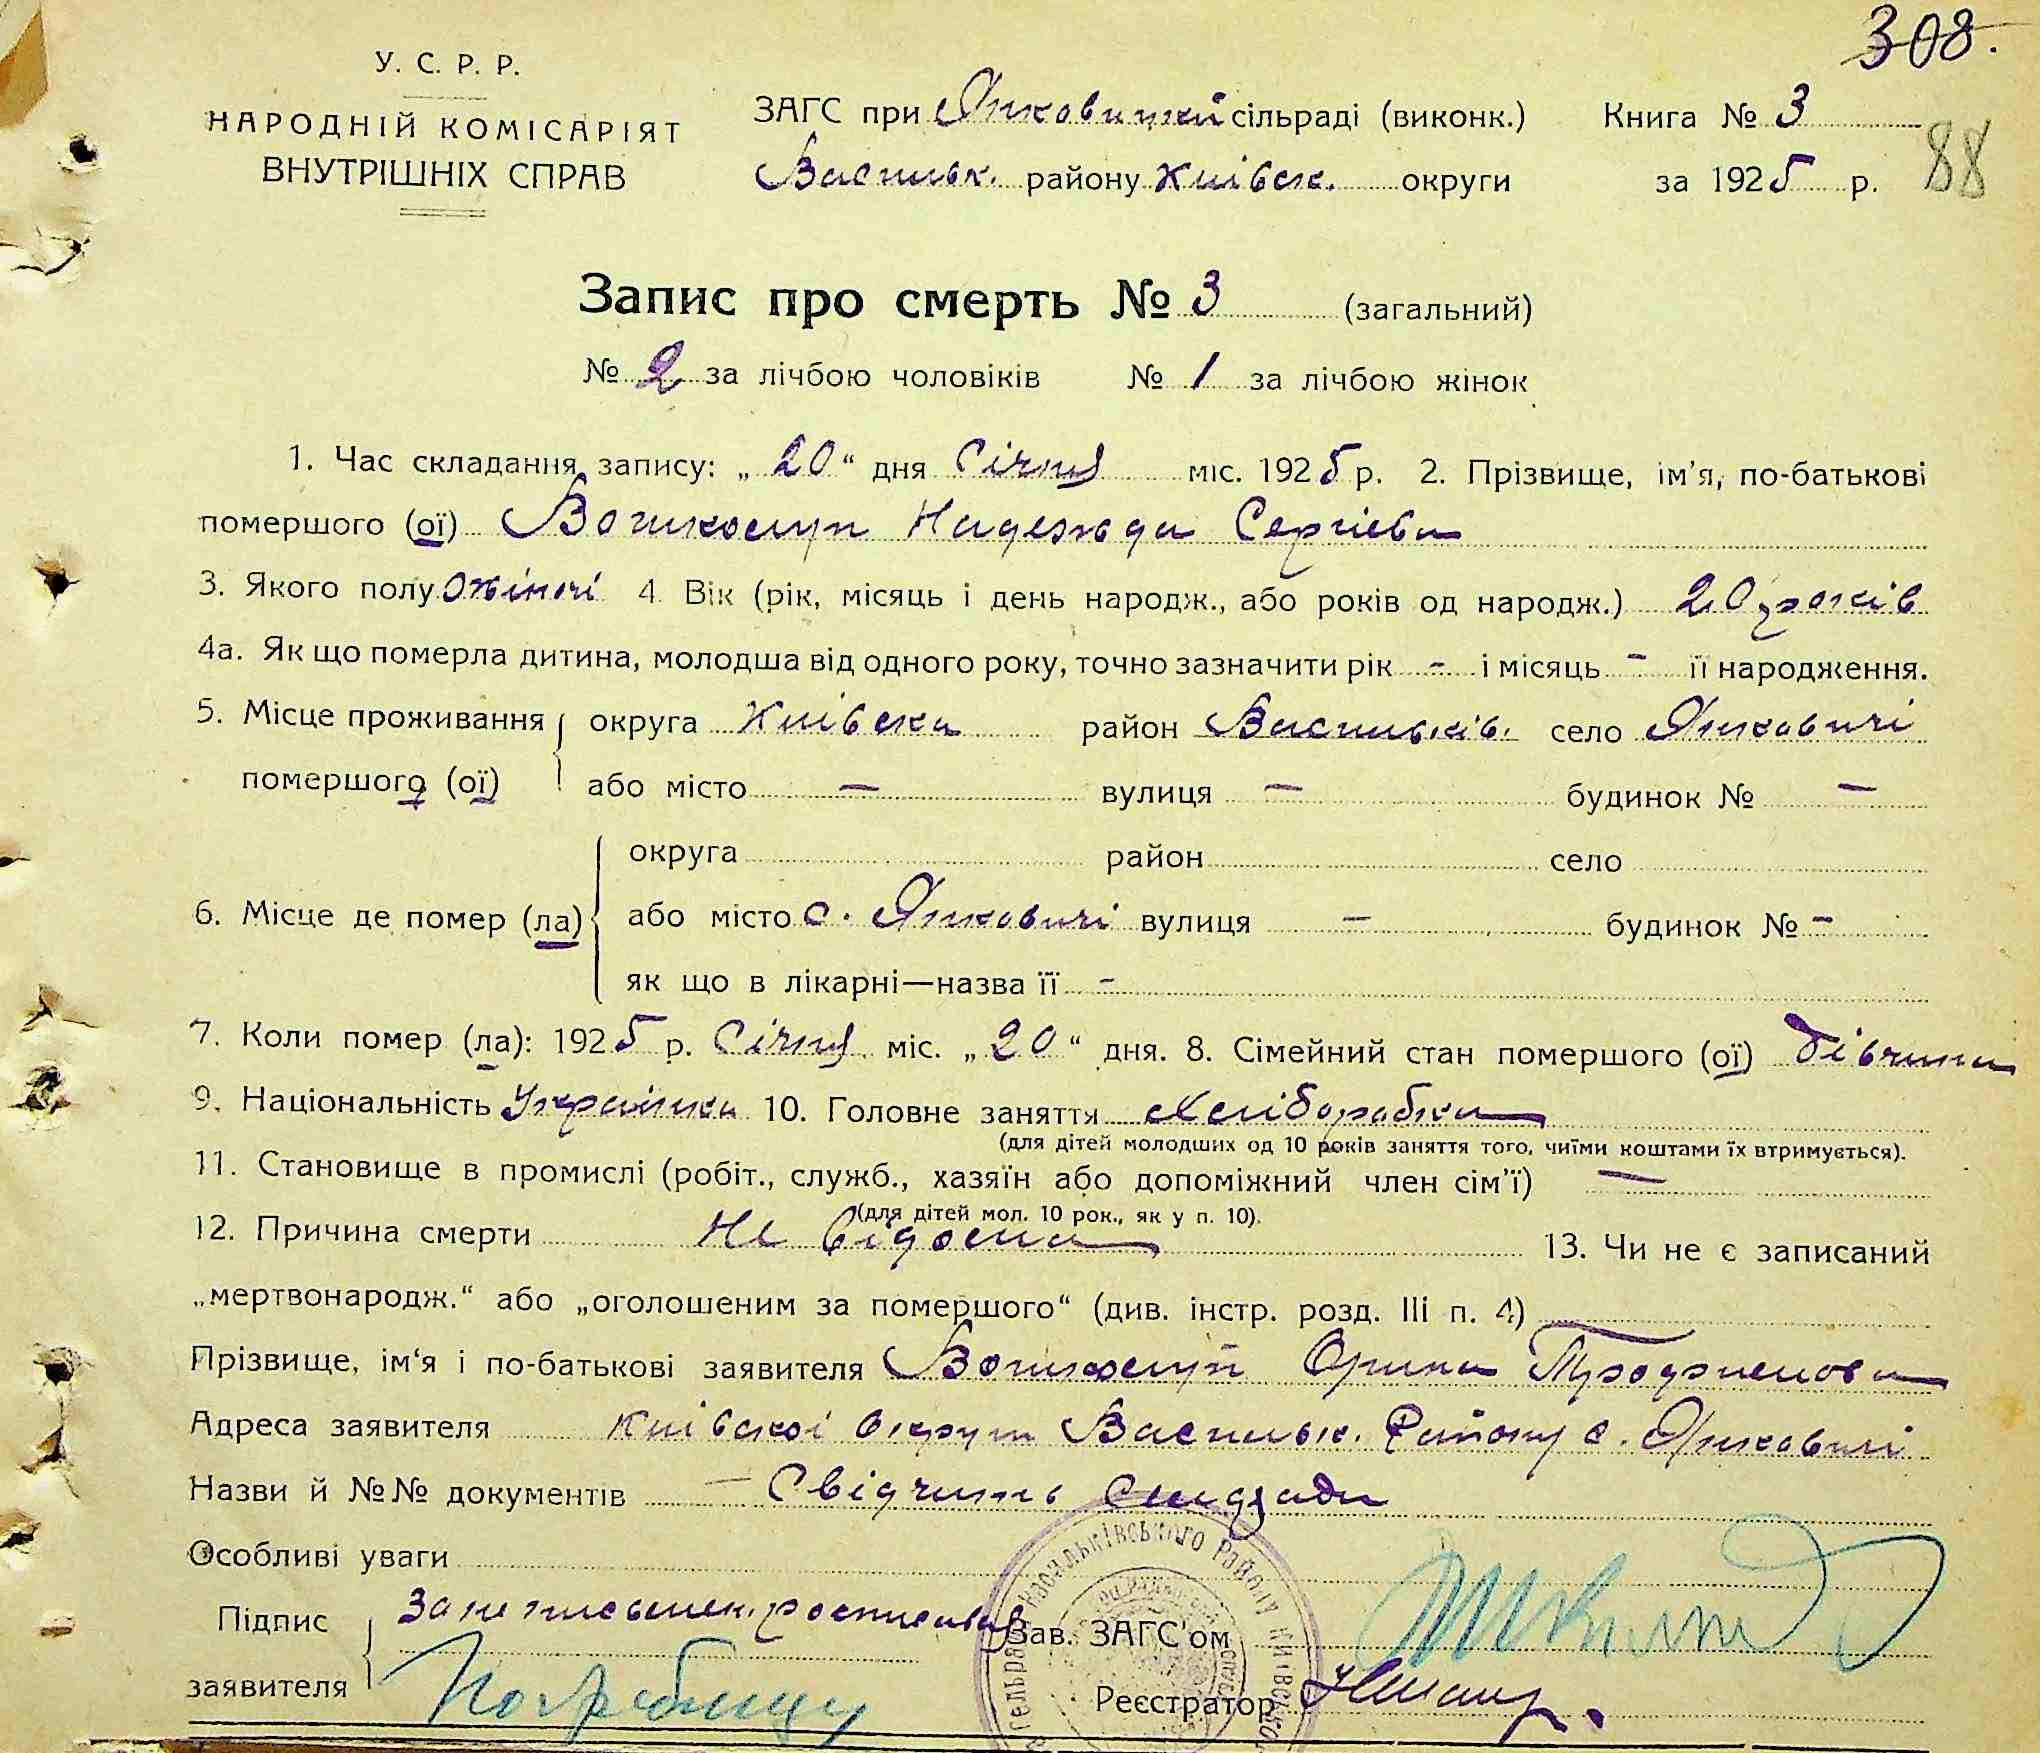 308.
У. С. Р. Р.
НАРОДНІЙ КОМІСАРІЯТ
ВНУТРІШНІХ СПРАВ
ЗАГС при Янковицкій сільраді (виконк.) Книга № 3
Васильк. району Київск. округи за 1925 р. 88
Запис про смерть № 3 (загальний)
№ 2 за лічбою чоловіків № 1 за лічбою жінок
1. Час складання запису: „20“ дня Січня міс. 1925 р. 2. Прізвище, ім'я, по-батькові
помершого (ої) Надежда Сергієва
3. Якого полу жіночі 4. Вік (рік, місяць і день народж., або років од народж.) 20 років
4а. Як що померла дитина, молодша від одного року, точно зазначити рік - і місяць - її народження.
5. Місце проживання округа Київска район Васильків. село Янковичі
помершого (ої) або місто — вулиця — будинок № —
округа район село
6. Місце де помер (ла) або місто с. Янковичі вулиця — будинок № -
як що в лікарні—назва її -
7. Коли помер (ла): 1925 р. Січня міс. „20“ дня. 8. Сімейний стан помершого (ої) дівчина
9. Національність Українка 10. Головне заняття Хліборобка
(для дітей молодших од 10 років заняття того, чиїми коштами їх втримується).
11. Становище в промислі (робіт., служб., хазяїн або допоміжний член сім'ї) —
(для дітей мол. 10 рок., як у п. 10).
12. Причина смерти Не відома 13. Чи не є записаний
„мертвонародж.“ або „оголошеним за помершого“ (див. інстр. розд. III п. 4) —
Прізвище, ім'я і по-батькові заявителя Орина Трофимова
Адреса заявителя Київскої округи Васильк. Району с. Янковичі
Назви й №№ документів — Свідчить
Особливі уваги
Підпис За неписьмен. росписався Зав. ЗАГС'ом
заявителя Реєстратор